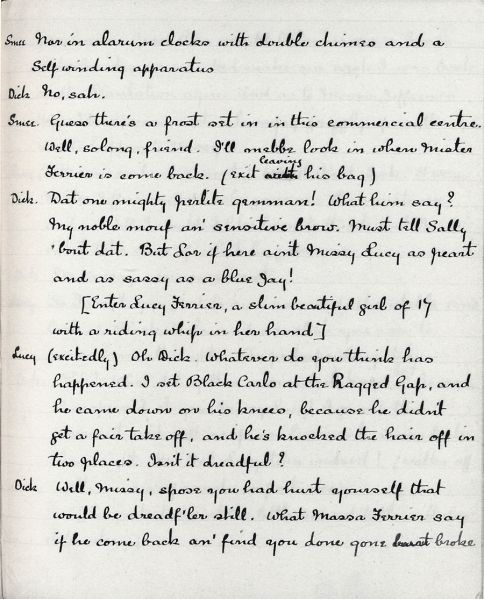 Smee Nor in alarum clocks with double chimes and a
Self winding apparatus
Dick No, sah.
Smee. Guess there's a frost set in in this commercial centre.
Well, solong, friend. I'll mebbe look in when Mister
leaving
Ferrier is come back. (Exit with his bag)
Dick. Dat one mighty perlite gemman! What him say?
My noble mouf an' sensitive brow. Must tell Sally
'bout dat. But Lor if here ain't Missy Lucy as peart
and as sassy as a blue Jay!
[Enter Lucy Ferrier, a slim beautiful girl of 17
with a riding whip in her hand]
Lucy (excitedly) Oh Dick. Whatever do you think has
happened. I set Black Carlo at the Ragged Gap, and
he came down on his knees, because he didn't
get a fair take off, and he's knocked the hair off in
two places. Isn't it dreadful?
Dick Well, Missy, spose you had hurt yourself that
would be dreadf'ler still. What Massa Ferrier say
if he come back an' find you done gone broke